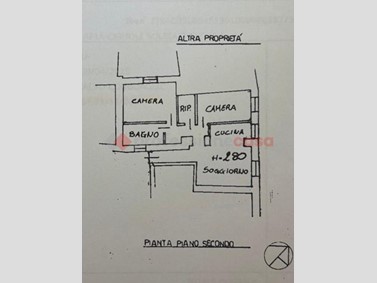 ALTRA PROPRIETÁ
CAMERA
RIP.
CAMERA
BAGNO
CUCINA
casa
H=280
SOGGIORNO
PIANTA PIANO SECONDO